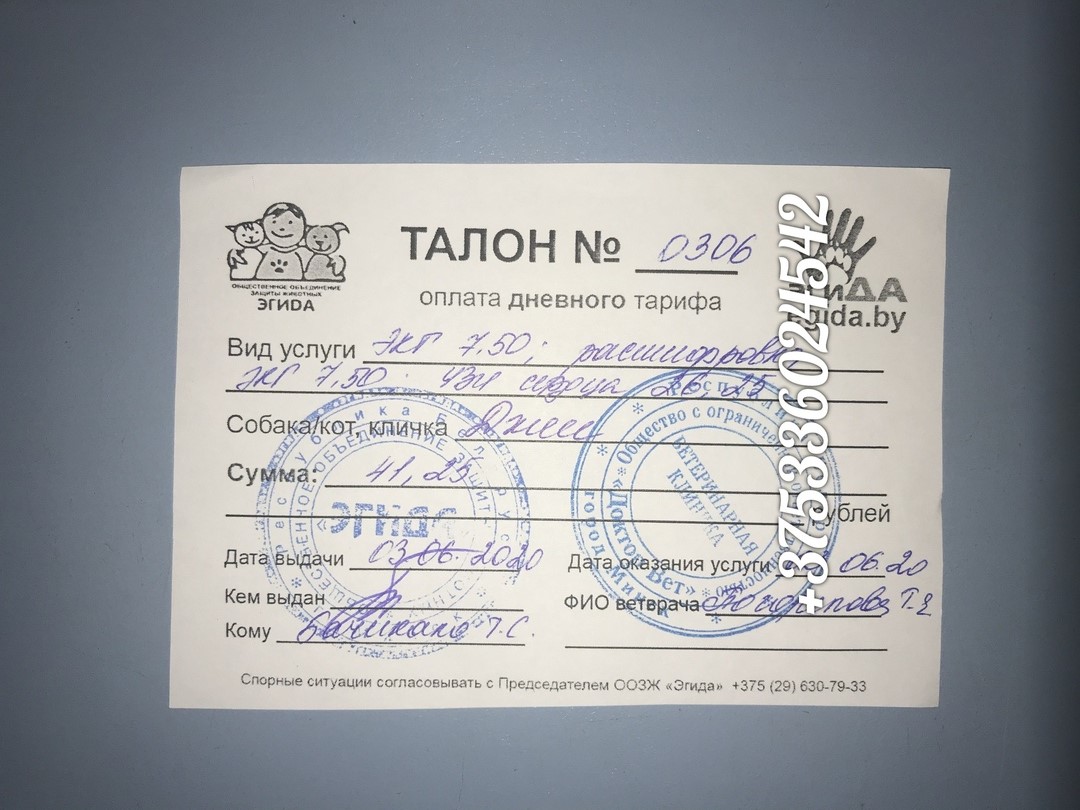 ТАЛОН № 0306
оплата дневного тарифа
ОБЩЕСТВЕННОЕ ОБЪЕДИНЕНИЕ
ЗАЩИТЫ ЖИВОТНЫХ
ЭГИДА
ЭГИДА
egida.by
Вид услуги ЭКГ 7,50; расшифровка
ЭКГ 7,50. УЗИ сердца 26,25
Собака/кот, кличка
Сумма: 41,25
рублей
Дата выдачи 03.06.2020
Дата оказания услуги 06.20
Кем выдан
ФИО ветврача
Кому Т.С.
Спорные ситуации согласовывать с Председателем ООЗЖ «Эгида» +375 (29) 630-79-33
+375336024542
Республика Беларусь
ОБЩЕСТВЕННОЕ ОБЪЕДИНЕНИЕ ЗАЩИТЫ
ЭГИДА
Общество с ограниченной
«Доктор Вет»
город Минск
ВЕТЕРИНАРНАЯ
КЛИНИКА